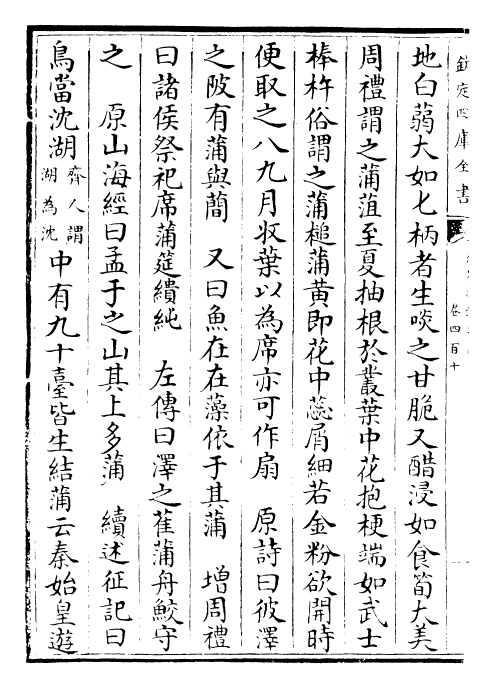 欽定四庫全書
卷四百十
地白蒻大如匕柄者生啖之甘脆又醋浸如食筍大美
周禮謂之蒲菹至夏抽根於叢葉中花抱梗端如武士
棒杵俗謂之蒲槌蒲黄即花中蕊屑細若金粉欲開時
便取之八九月收葉以為席亦可作扇　原詩曰彼澤
之陂有蒲與蕳　又曰魚在在藻依于其蒲　增周禮
曰諸侯祭祀席蒲筵繢純　左傳曰澤之萑蒲舟鮫守
之　原山海經曰孟于之山其上多蒲　續述征記曰
鳥當沈湖齊人謂湖為沈中有九十臺皆生結蒲云秦始皇遊